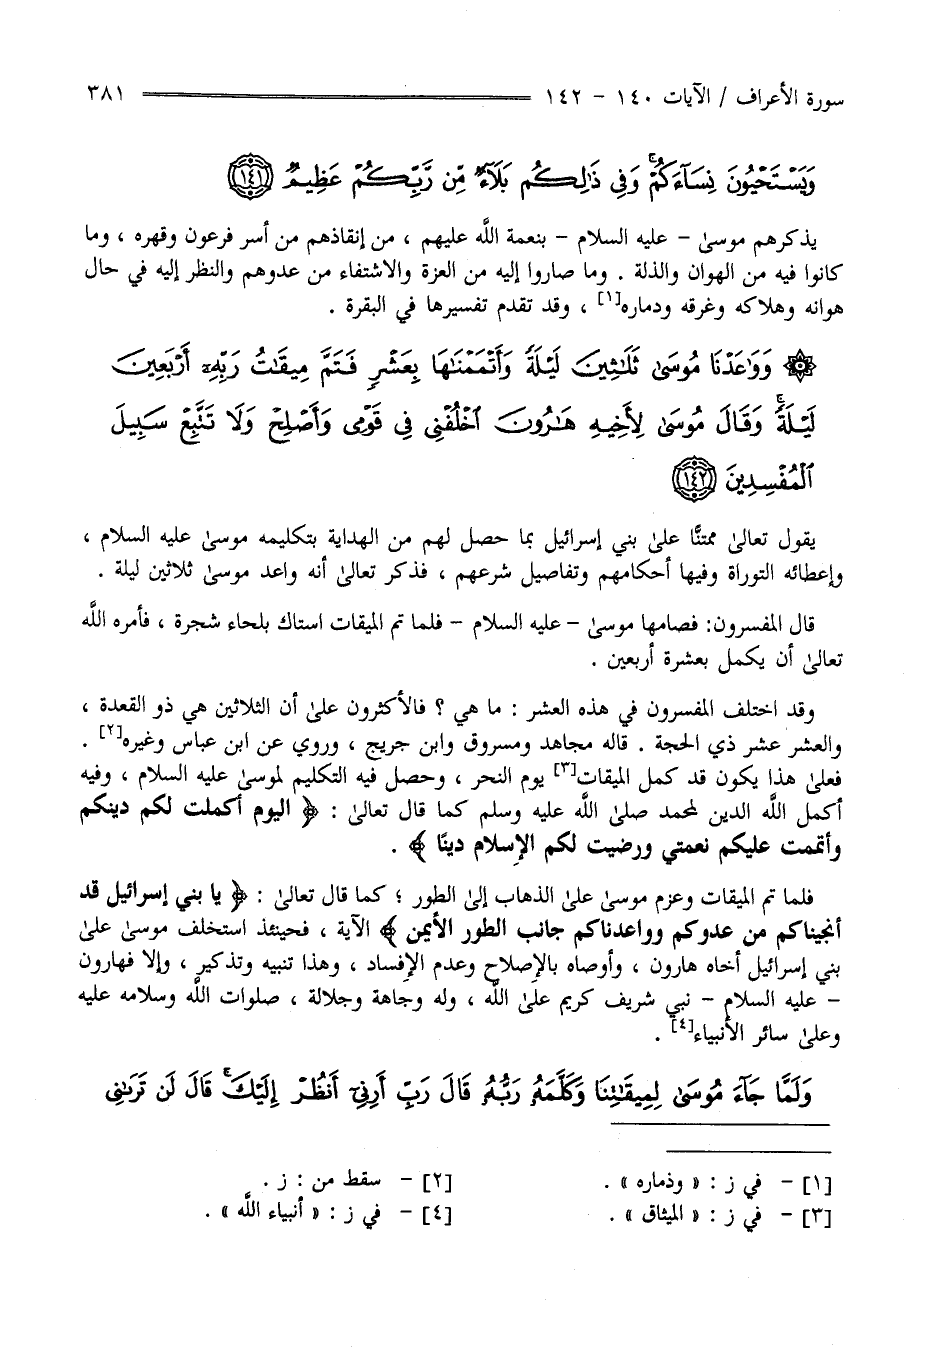 سورة الأعراف / الآيات ١٤٠ - ١٤٢ ٣٨١
وَيَسْتَحْيُونَ نِسَآءَكُمْ ۚ وَفِي ذَٰلِكُم بَلَآءٌ مِّن رَّبِّكُمْ عَظِيمٌ ﴿١٤١﴾
يذكرهم موسىٰ - عليه السلام - بنعمة اللَّه عليهم ، من إنقاذهم من أسر فرعون وقهره ، وما
كانوا فيه من الهوان والذلة . وما صاروا إليه من العزة والاشتفاء من عدوهم والنظر إليه في حال
هوانه وهلاكه وغرقه ودماره[١] ، وقد تقدم تفسيرها في البقرة .
۞ وَوَٰعَدْنَا مُوسَىٰ ثَلَٰثِينَ لَيْلَةً وَأَتْمَمْنَٰهَا بِعَشْرٍ فَتَمَّ مِيقَٰتُ رَبِّهِۦٓ أَرْبَعِينَ
لَيْلَةً ۚ وَقَالَ مُوسَىٰ لِأَخِيهِ هَٰرُونَ ٱخْلُفْنِي فِي قَوْمِي وَأَصْلِحْ وَلَا تَتَّبِعْ سَبِيلَ
ٱلْمُفْسِدِينَ ﴿١٤٢﴾
يقول تعالىٰ ممتنًّا علىٰ بني إسرائيل بما حصل لهم من الهداية بتكليمه موسىٰ عليه السلام ،
وإعطائه التوراة وفيها أحكامهم وتفاصيل شرعهم ، فذكر تعالىٰ أنه واعد موسىٰ ثلاثين ليلة .
قال المفسرون: فصامها موسىٰ - عليه السلام - فلما تم الميقات استاك بلحاء شجرة ، فأمره اللَّه
تعالىٰ أن يكمل بعشرة أربعين .
وقد اختلف المفسرون في هذه العشر : ما هي ؟ فالأكثرون علىٰ أن الثلاثين هي ذو القعدة ،
والعشر عشر ذي الحجة . قاله مجاهد ومسروق وابن جريج ، وروي عن ابن عباس وغيره[٢] .
فعلىٰ هذا يكون قد كمل الميقات[٣] يوم النحر ، وحصل فيه التكليم لموسىٰ عليه السلام ، وفيه
أكمل اللَّه الدين لمحمد صلىٰ اللَّه عليه وسلم كما قال تعالىٰ : ﴿ اليوم أكملت لكم دينكم
وأتممت عليكم نعمتي ورضيت لكم الإسلام دينًا ﴾ .
فلما تم الميقات وعزم موسىٰ علىٰ الذهاب إلىٰ الطور ؛ كما قال تعالىٰ : ﴿ يا بني إسرائيل قد
أنجيناكم من عدوكم وواعدناكم جانب الطور الأيمن ﴾ الآية ، فحينئذ استخلف موسىٰ علىٰ
بني إسرائيل أخاه هارون ، وأوصاه بالإصلاح وعدم الإفساد ، وهذا تنبيه وتذكير ، وإلا فهارون
- عليه السلام - نبي شريف كريم علىٰ اللَّه ، وله وجاهة وجلالة ، صلوات اللَّه وسلامه عليه
وعلىٰ سائر الأنبياء[٤] .
وَلَمَّا جَآءَ مُوسَىٰ لِمِيقَٰتِنَا وَكَلَّمَهُۥ رَبُّهُۥ قَالَ رَبِّ أَرِنِيٓ أَنظُرْ إِلَيْكَ ۚ قَالَ لَن تَرَىٰنِي
[١] - في ز : « وذماره » . [٢] - سقط من : ز .
[٣] - في ز : « الميثاق » . [٤] - في ز : « أنبياء اللَّه » .